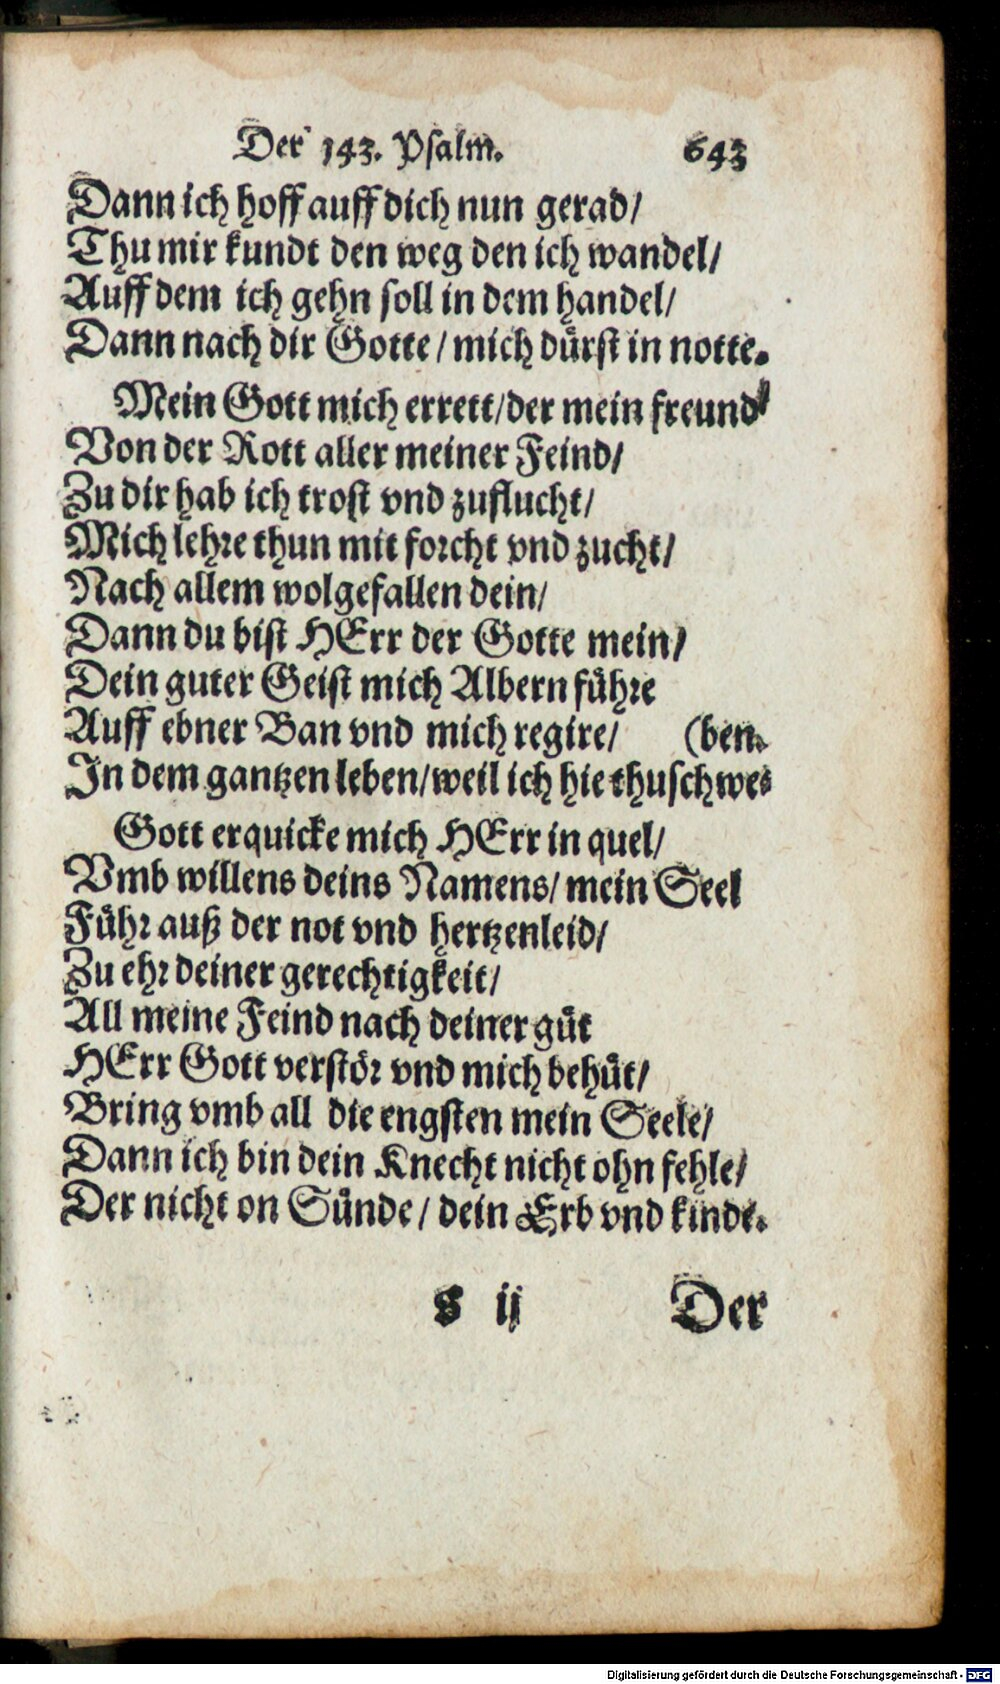 Der 143. Psalm. 643
Dann ich hoff auff dich nun gerad/
Thu mir kundt den weg den ich wandel/
Auff dem ich gehn soll in dem handel/
Dann nach dir Gotte / mich dürst in notte.
Mein Gott mich errett/der mein freund/
Von der Rott aller meiner Feind/
Zu dir hab ich trost vnd zuflucht/
Mich lehre thun mit forcht vnd zucht/
Nach allem wolgefallen dein/
Dann du bist HErr der Gotte mein/
Dein guter Geist mich Albern führe
Auff ebner Ban vnd mich regire/ (ben.
In dem gantzen leben/weil ich hie thu schwe-
Gott erquicke mich HErr in quel/
Vmb willens deins Namens/ mein Seel
Führ auß der not vnd hertzenleid/
Zu ehr deiner gerechtigkeit/
All meine Feind nach deiner güt
HErr Gott verstör vnd mich behüt/
Bring vmb all die engsten mein Seele/
Dann ich bin dein Knecht nicht ohn fehle/
Der nicht on Sünde / dein Erb vnd kinde.
S ij Der
Digitalisierung gefördert durch die Deutsche Forschungsgemeinschaft - DFG